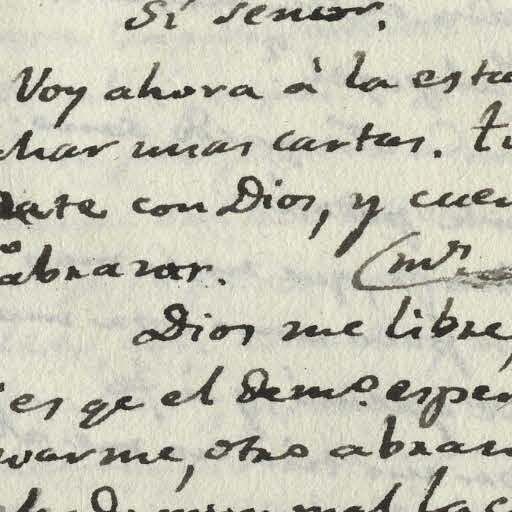 Sí senor.
Voy ahora à la esta
char unas cartas. tu
date con Dios, y cuen
abrazar. (mr
Dios me libre,
es qe el Demo. esper
varme, otro abraz
mal